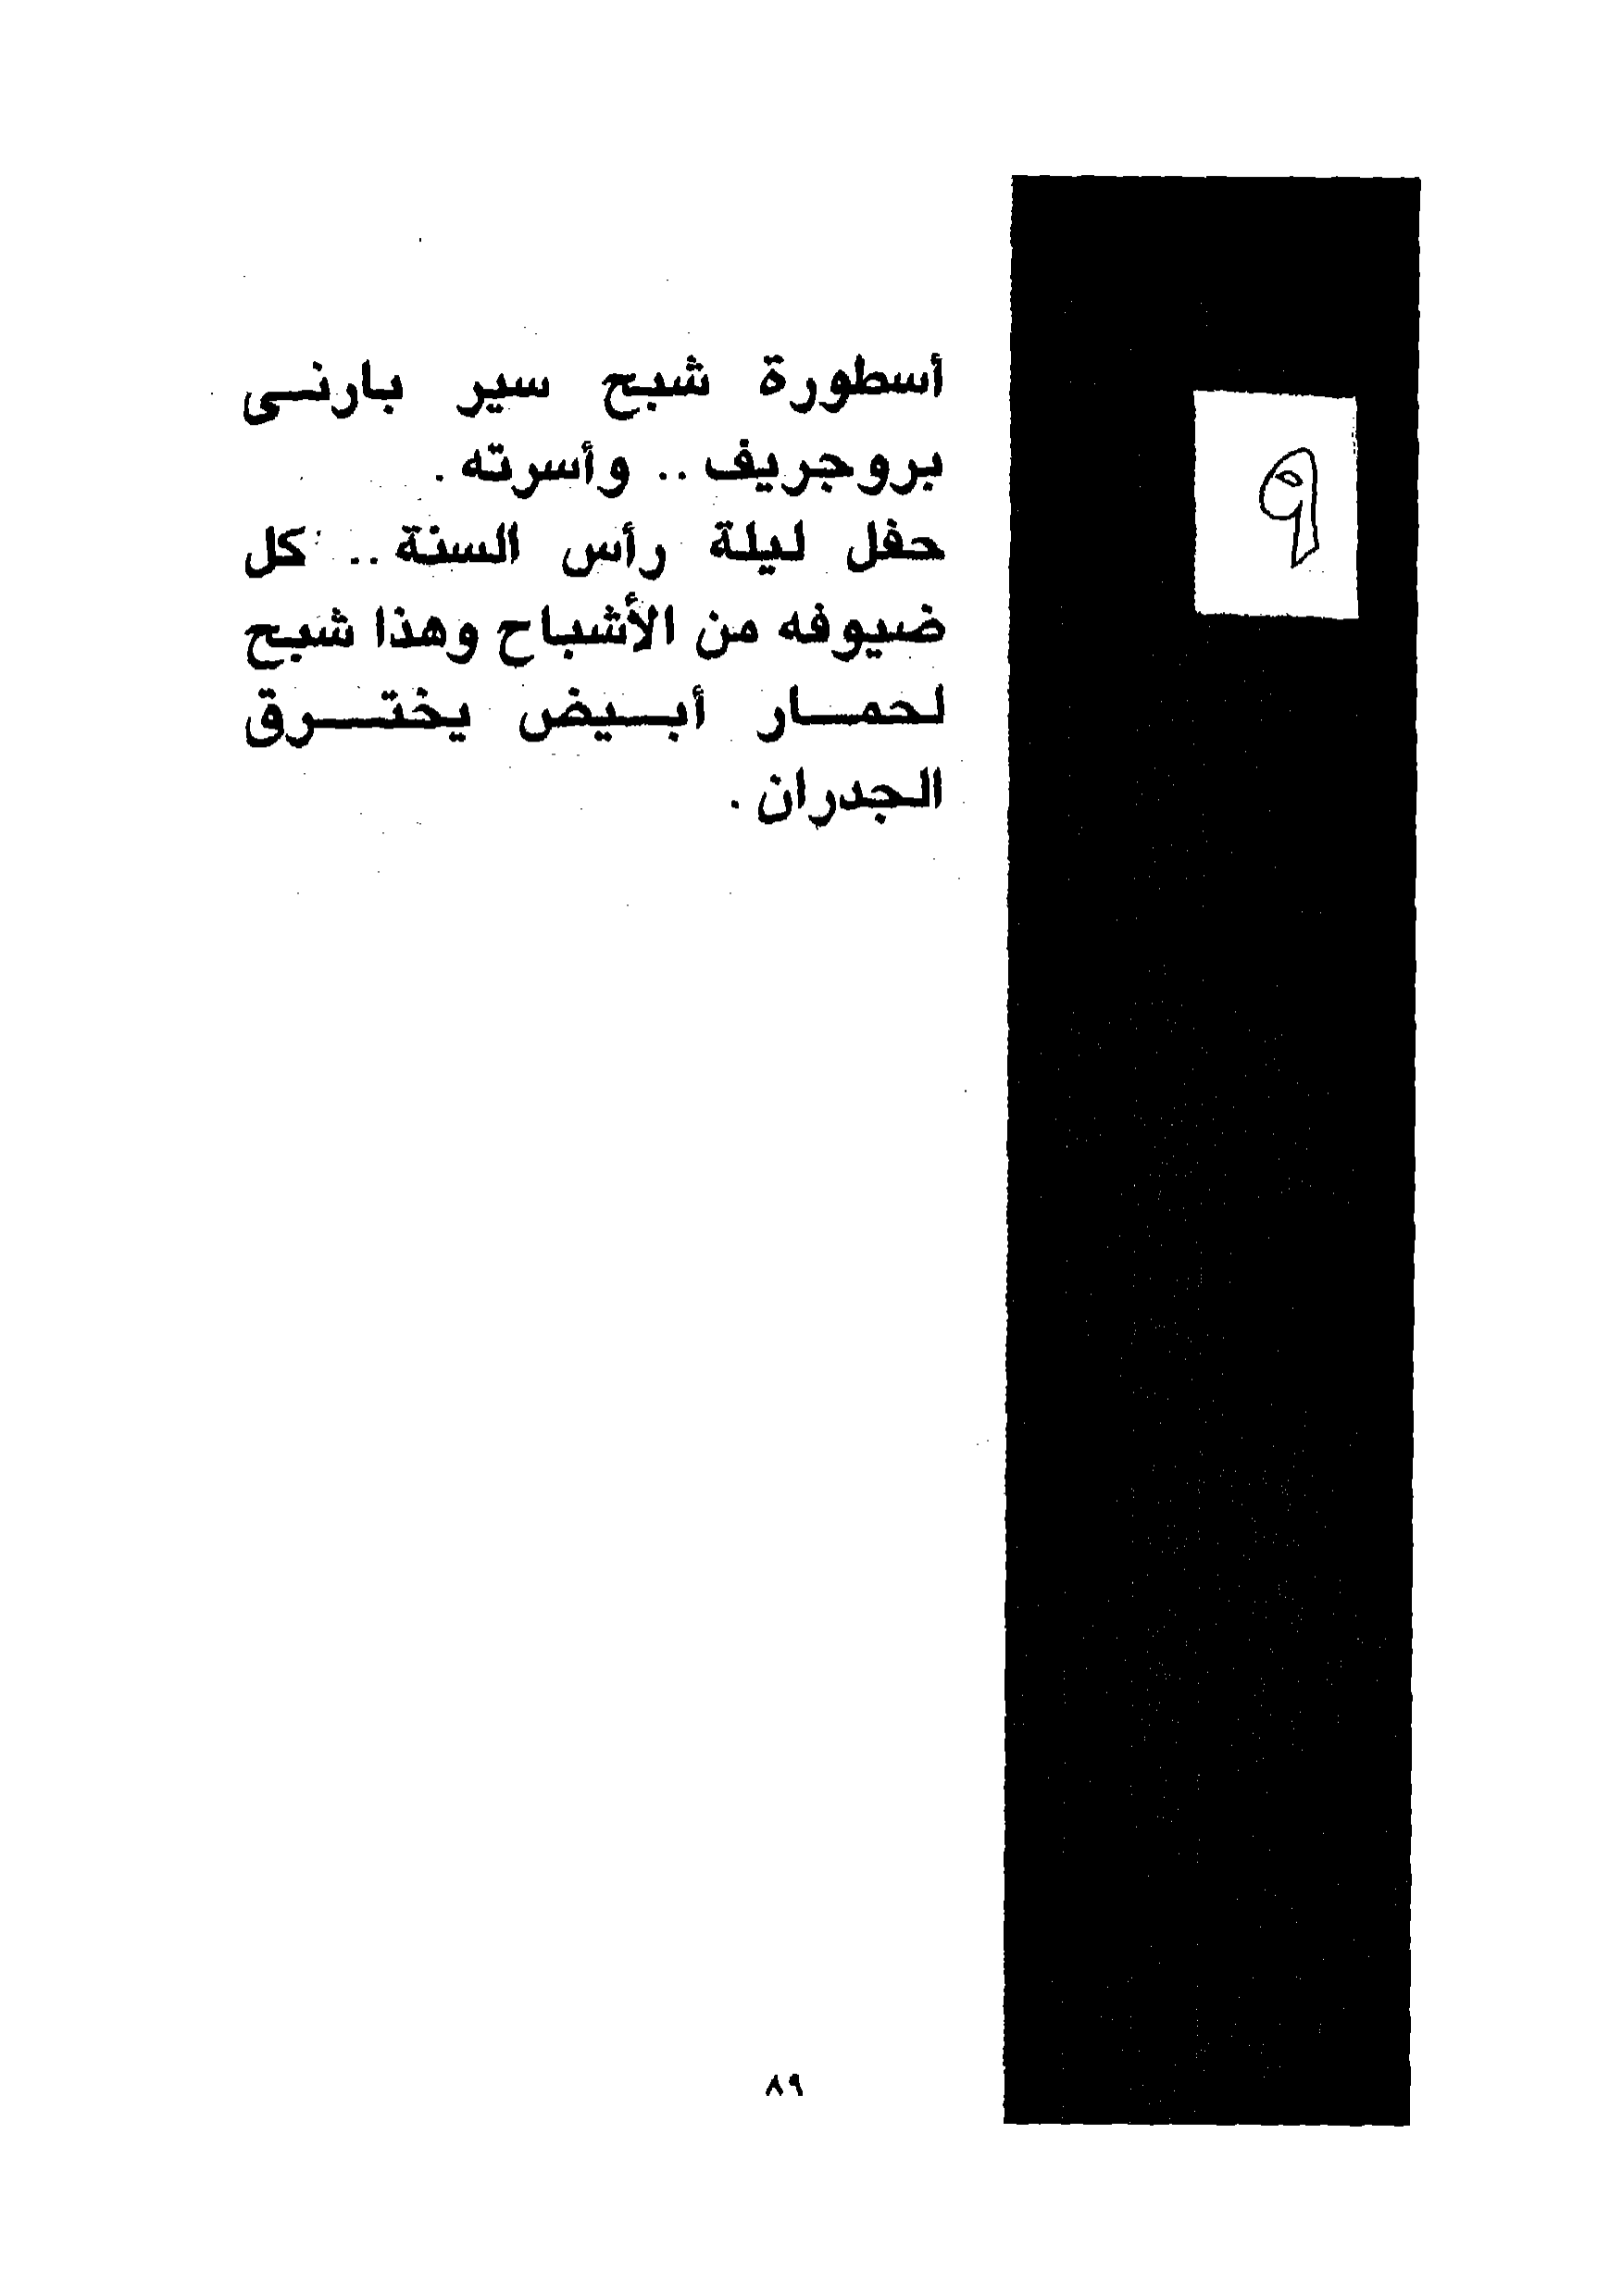 ٩
أسطورة شبح سير بارنى
بروجريف .. وأسرته .
حفل ليلة رأس السنة .. كل
ضيوفه من الأشباح وهذا شبح
لحمار أبيض يخترق
الجدران .
٨٩